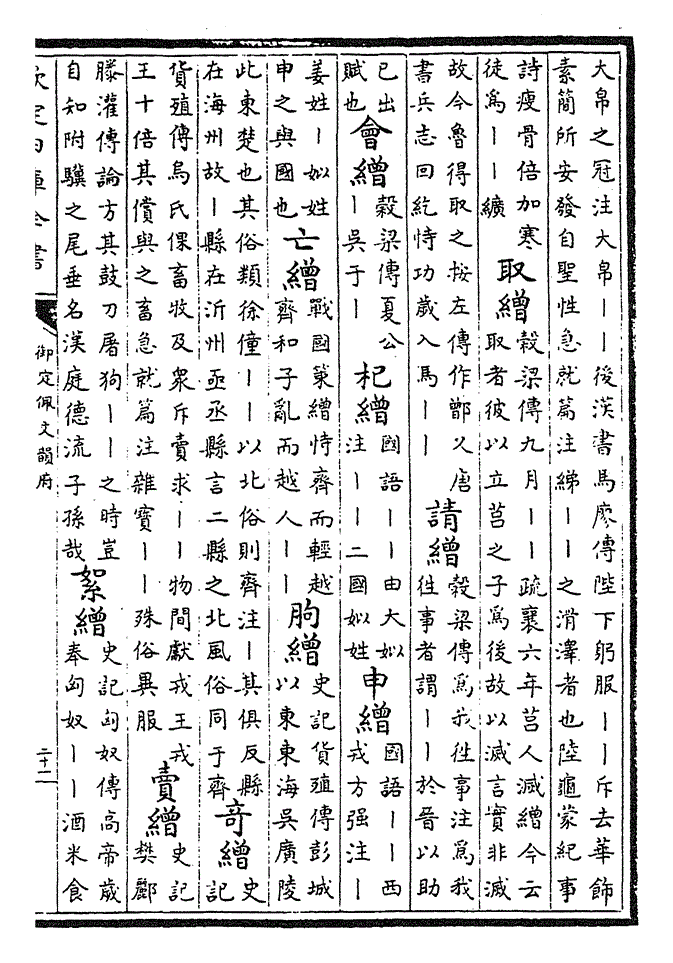 大帛之冠注大帛丨丨後漢書馬廖傳陛下躬服丨丨斥去華飾
素簡所安發自聖性急就篇注綈丨丨之滑澤者也陸龜蒙紀事
詩瘦骨倍加寒
徒爲丨丨纊
取繒
榖梁傳九月丨丨疏襄六年莒人滅繒今云
取者彼以立莒之子爲後故以滅言實非滅
故今魯得取之按左傳作鄫乂唐
書兵志回紇恃功歲入馬丨丨
請繒
榖梁傳爲我徃事注爲我
徃事者謂丨丨於晉以助
已出
賦也
會繒
榖梁傳夏公
丨吳于丨
杞繒
國語丨丨由大姒
注丨丨二國姒姓
申繒
國語丨丨西
戎方强注丨
姜姓丨姒姓
申之與國也
亡繒
戰國策繒恃齊而輕越
齊和子亂而越人丨丨
朐繒
史記貨殖傳彭城
以東東海吳廣陵
此東楚也其俗類徐僮丨丨以北俗則齊注丨其俱反縣
在海州故丨縣在沂州亟丞縣言二縣之北風俗同于齊
奇繒
史
記
貨殖傳烏氏倮畜牧及衆斥賣求丨丨物間獻戎王戎
王十倍其償與之畜急就篇注雜寶丨丨殊俗異服
賣繒
史記
樊酈
滕灌傳論方其鼓刀屠狗丨丨之時豈
自知附驥之尾垂名漢庭德流子孫哉
絮繒
史記匈奴傳高帝歲
奉匈奴丨丨酒米食
欽定四庫全書
御定佩文韻府
二十二